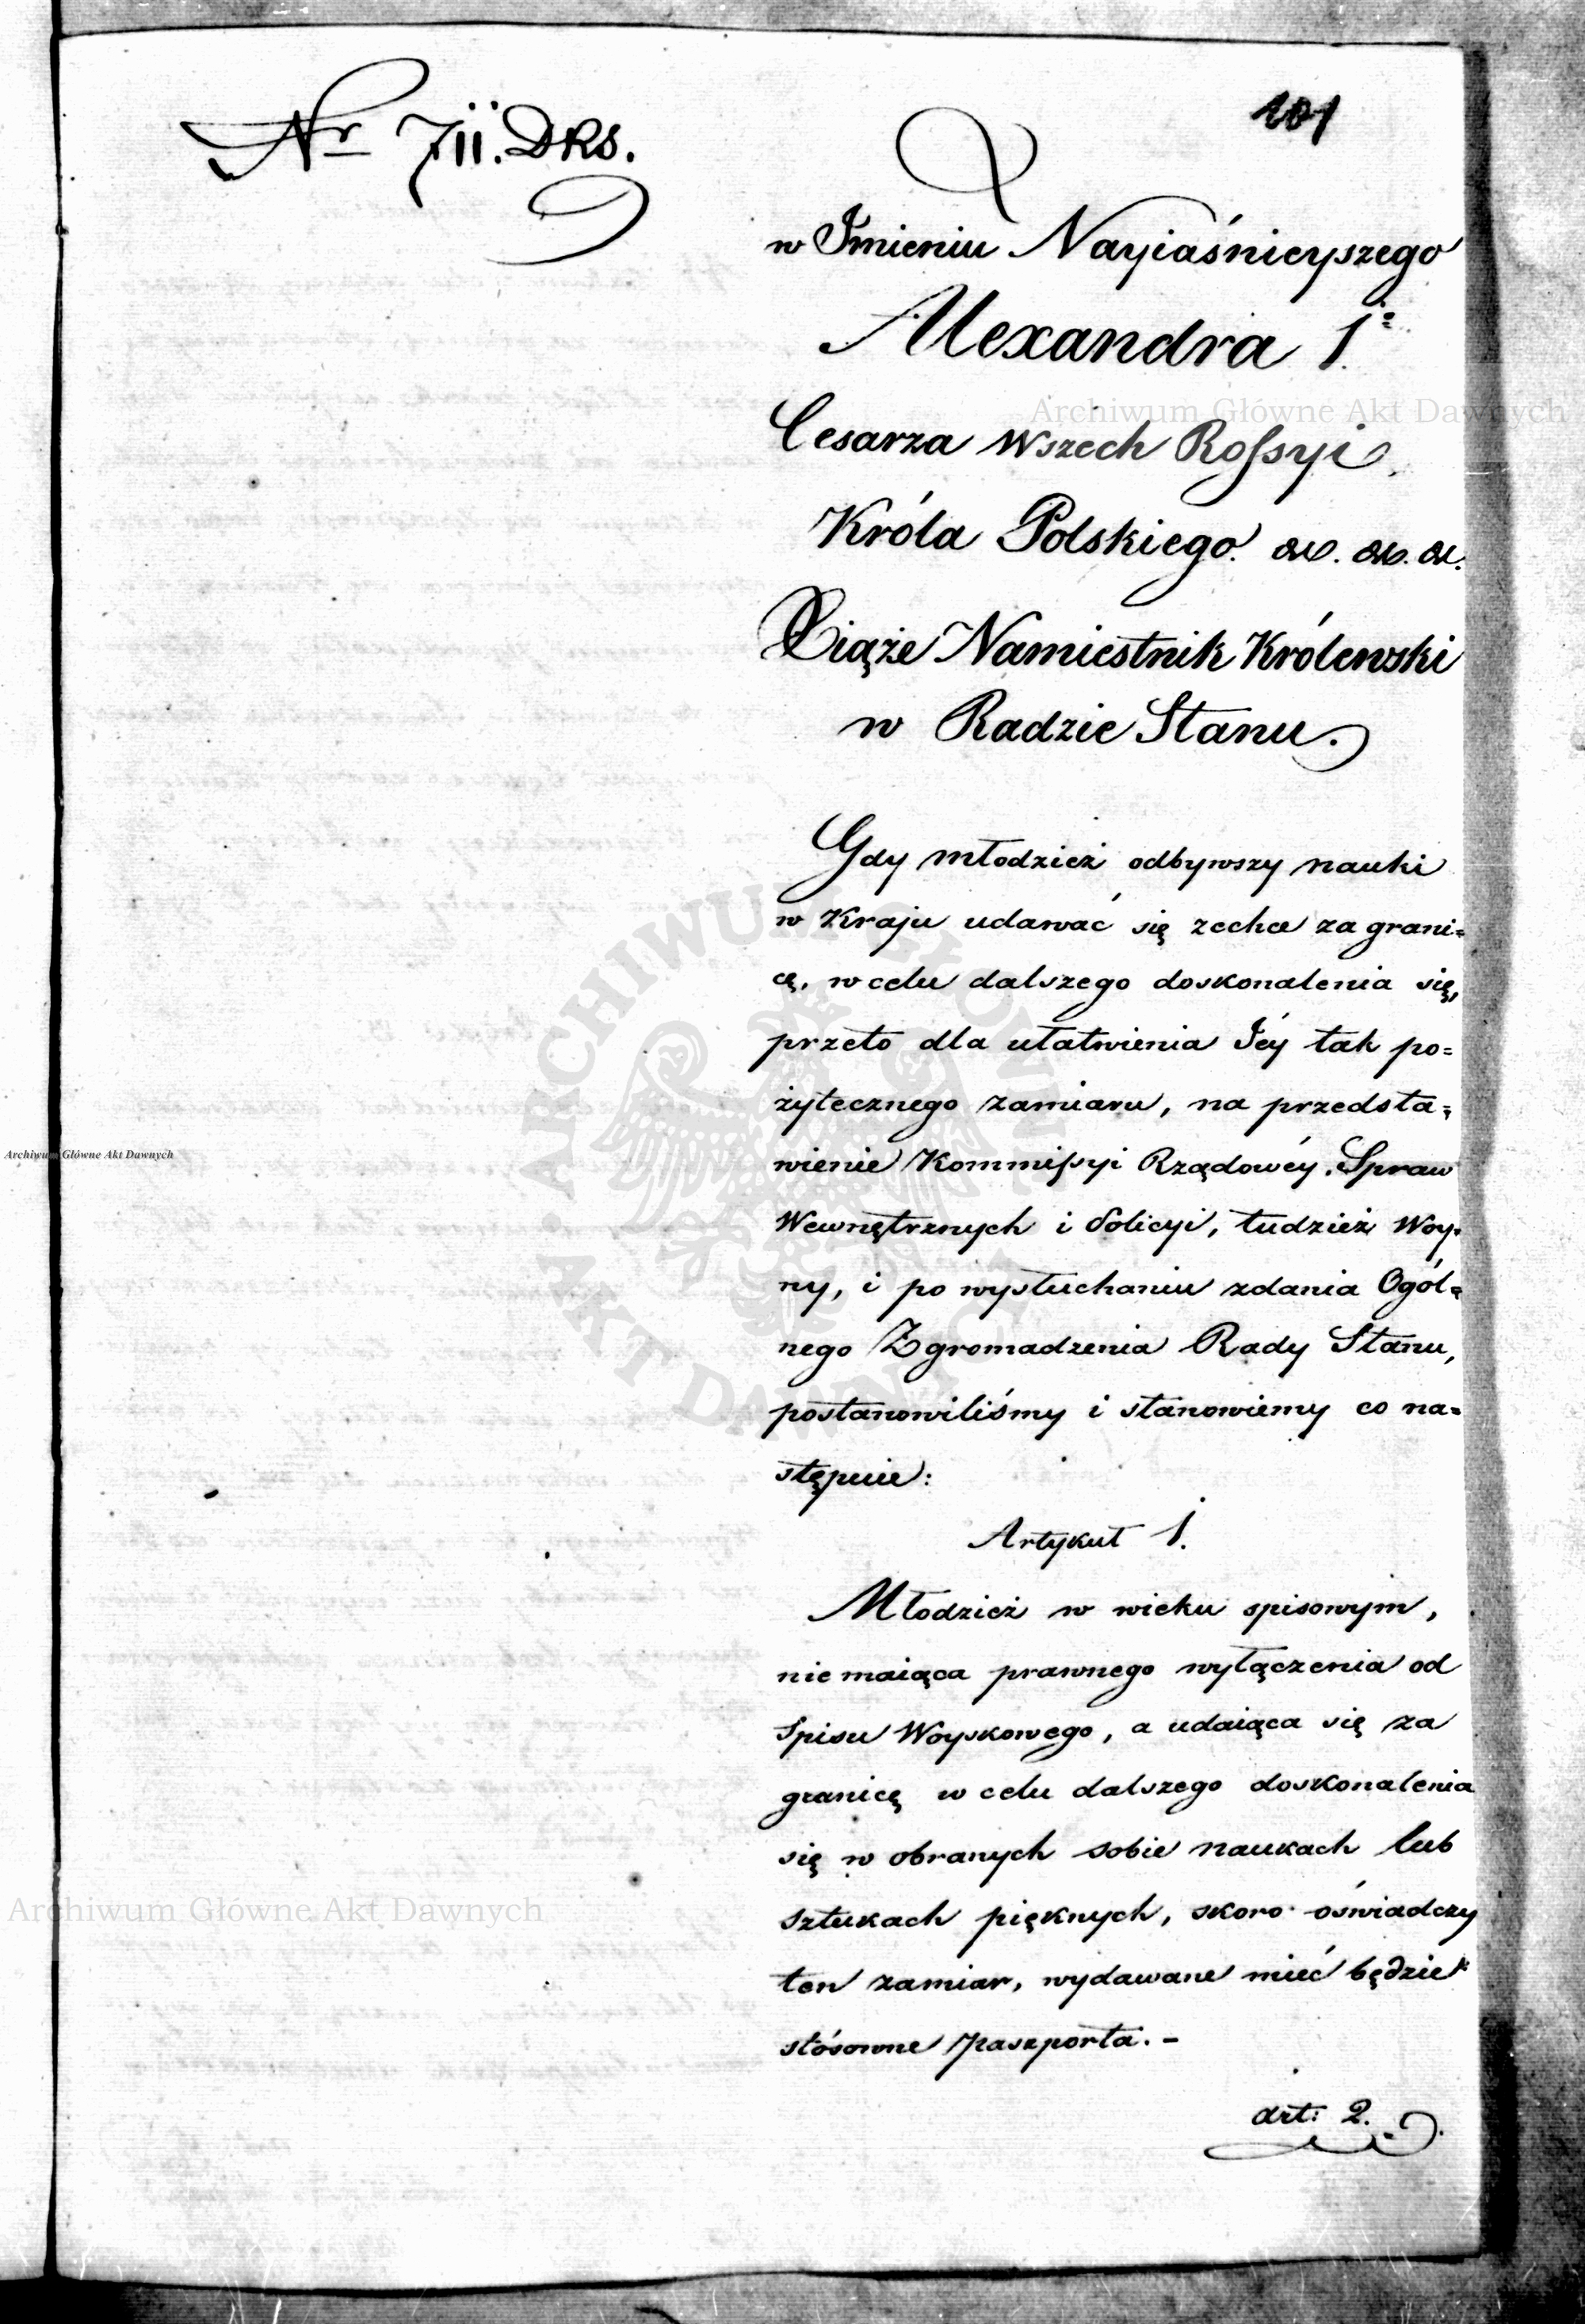 Nr 711. DRS.
101
w Jmieniu Nayiaśnieyszego
Alexandra 1o
Cesarza Wszech Rossyi,
Króla Polskiego. &c. &c. &c.
Xiąże Namiestnik Królewski
w Radzie Stanu.
Gdy młodzież odbywszy nauki
w Kraju udawać się zechce za grani=
cę, w celu dalszego doskonalenia się,
przeto dla ułatwienia Jéy tak po=
żytecznego zamiaru, na przedsta=
wienie Kommissyi Rządowéy Spraw
Wewnętrznych i Policyi, tudzież Woy=
ny, i po wysłuchaniu zdania Ogól=
nego Zgromadzenia Rady Stanu,
postanowiliśmy i stanowiemy co na=
stępuie:
Artykuł 1.
Młodzież w wieku spisowym,
nie maiąca prawnego wyłączenia od
Spisu Woyskowego, a udaiąca się za
granicę w celu dalszego doskonalenia
się w obranych sobie naukach lub
sztukach pięknych, skoro oświadczy
ten zamiar, wydawane mieć będzie
stósowne paszporta. -
Art: 2.
Archiwum Główne Akt Dawnych
Archiwum Główne Akt Dawnych
Archiwum Główne Akt Dawnych
ARCHIWUM GŁÓWNE
AKT DAWNYCH